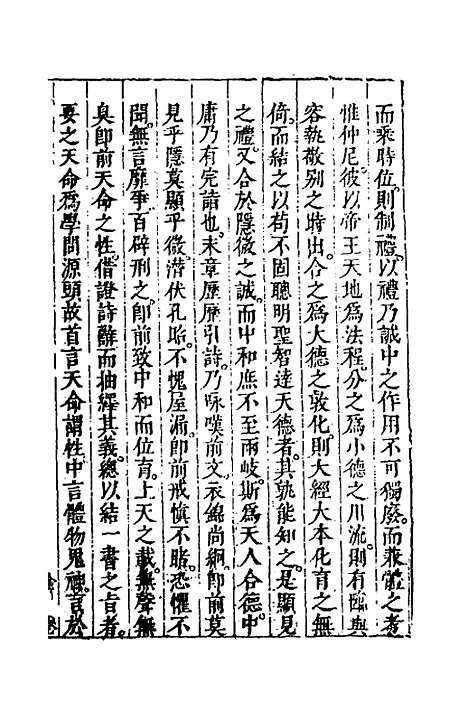 而乘時位則制禮以禮乃誠中之作用不可獨廢而兼體之者
惟仲尼彼以帝王天地爲法程分之爲小德之川流則有臨與
容執敬别之時出合之爲大德之敦化則大經大本化育之無
倚而結之以苟不固聰明聖智達天德者其孰能知之是顯見
之禮又合於隱微之誠而中和庶不至兩岐斯爲天人合德中
庸乃有完詣也末章歷歷引詩乃咏嘆前文衣錦尚絅即前莫
見乎隱莫顯乎微潛伏孔昭不愧屋漏即前戒慎不睹恐懼不
聞無言靡爭百辟刑之即前致中和而位育上天之載無聲無
臭即前天命之性借證詩辭而抽繹其義總以結一書之旨者
要之天命爲學問源頭故首言天命謂性中言體物鬼神言於